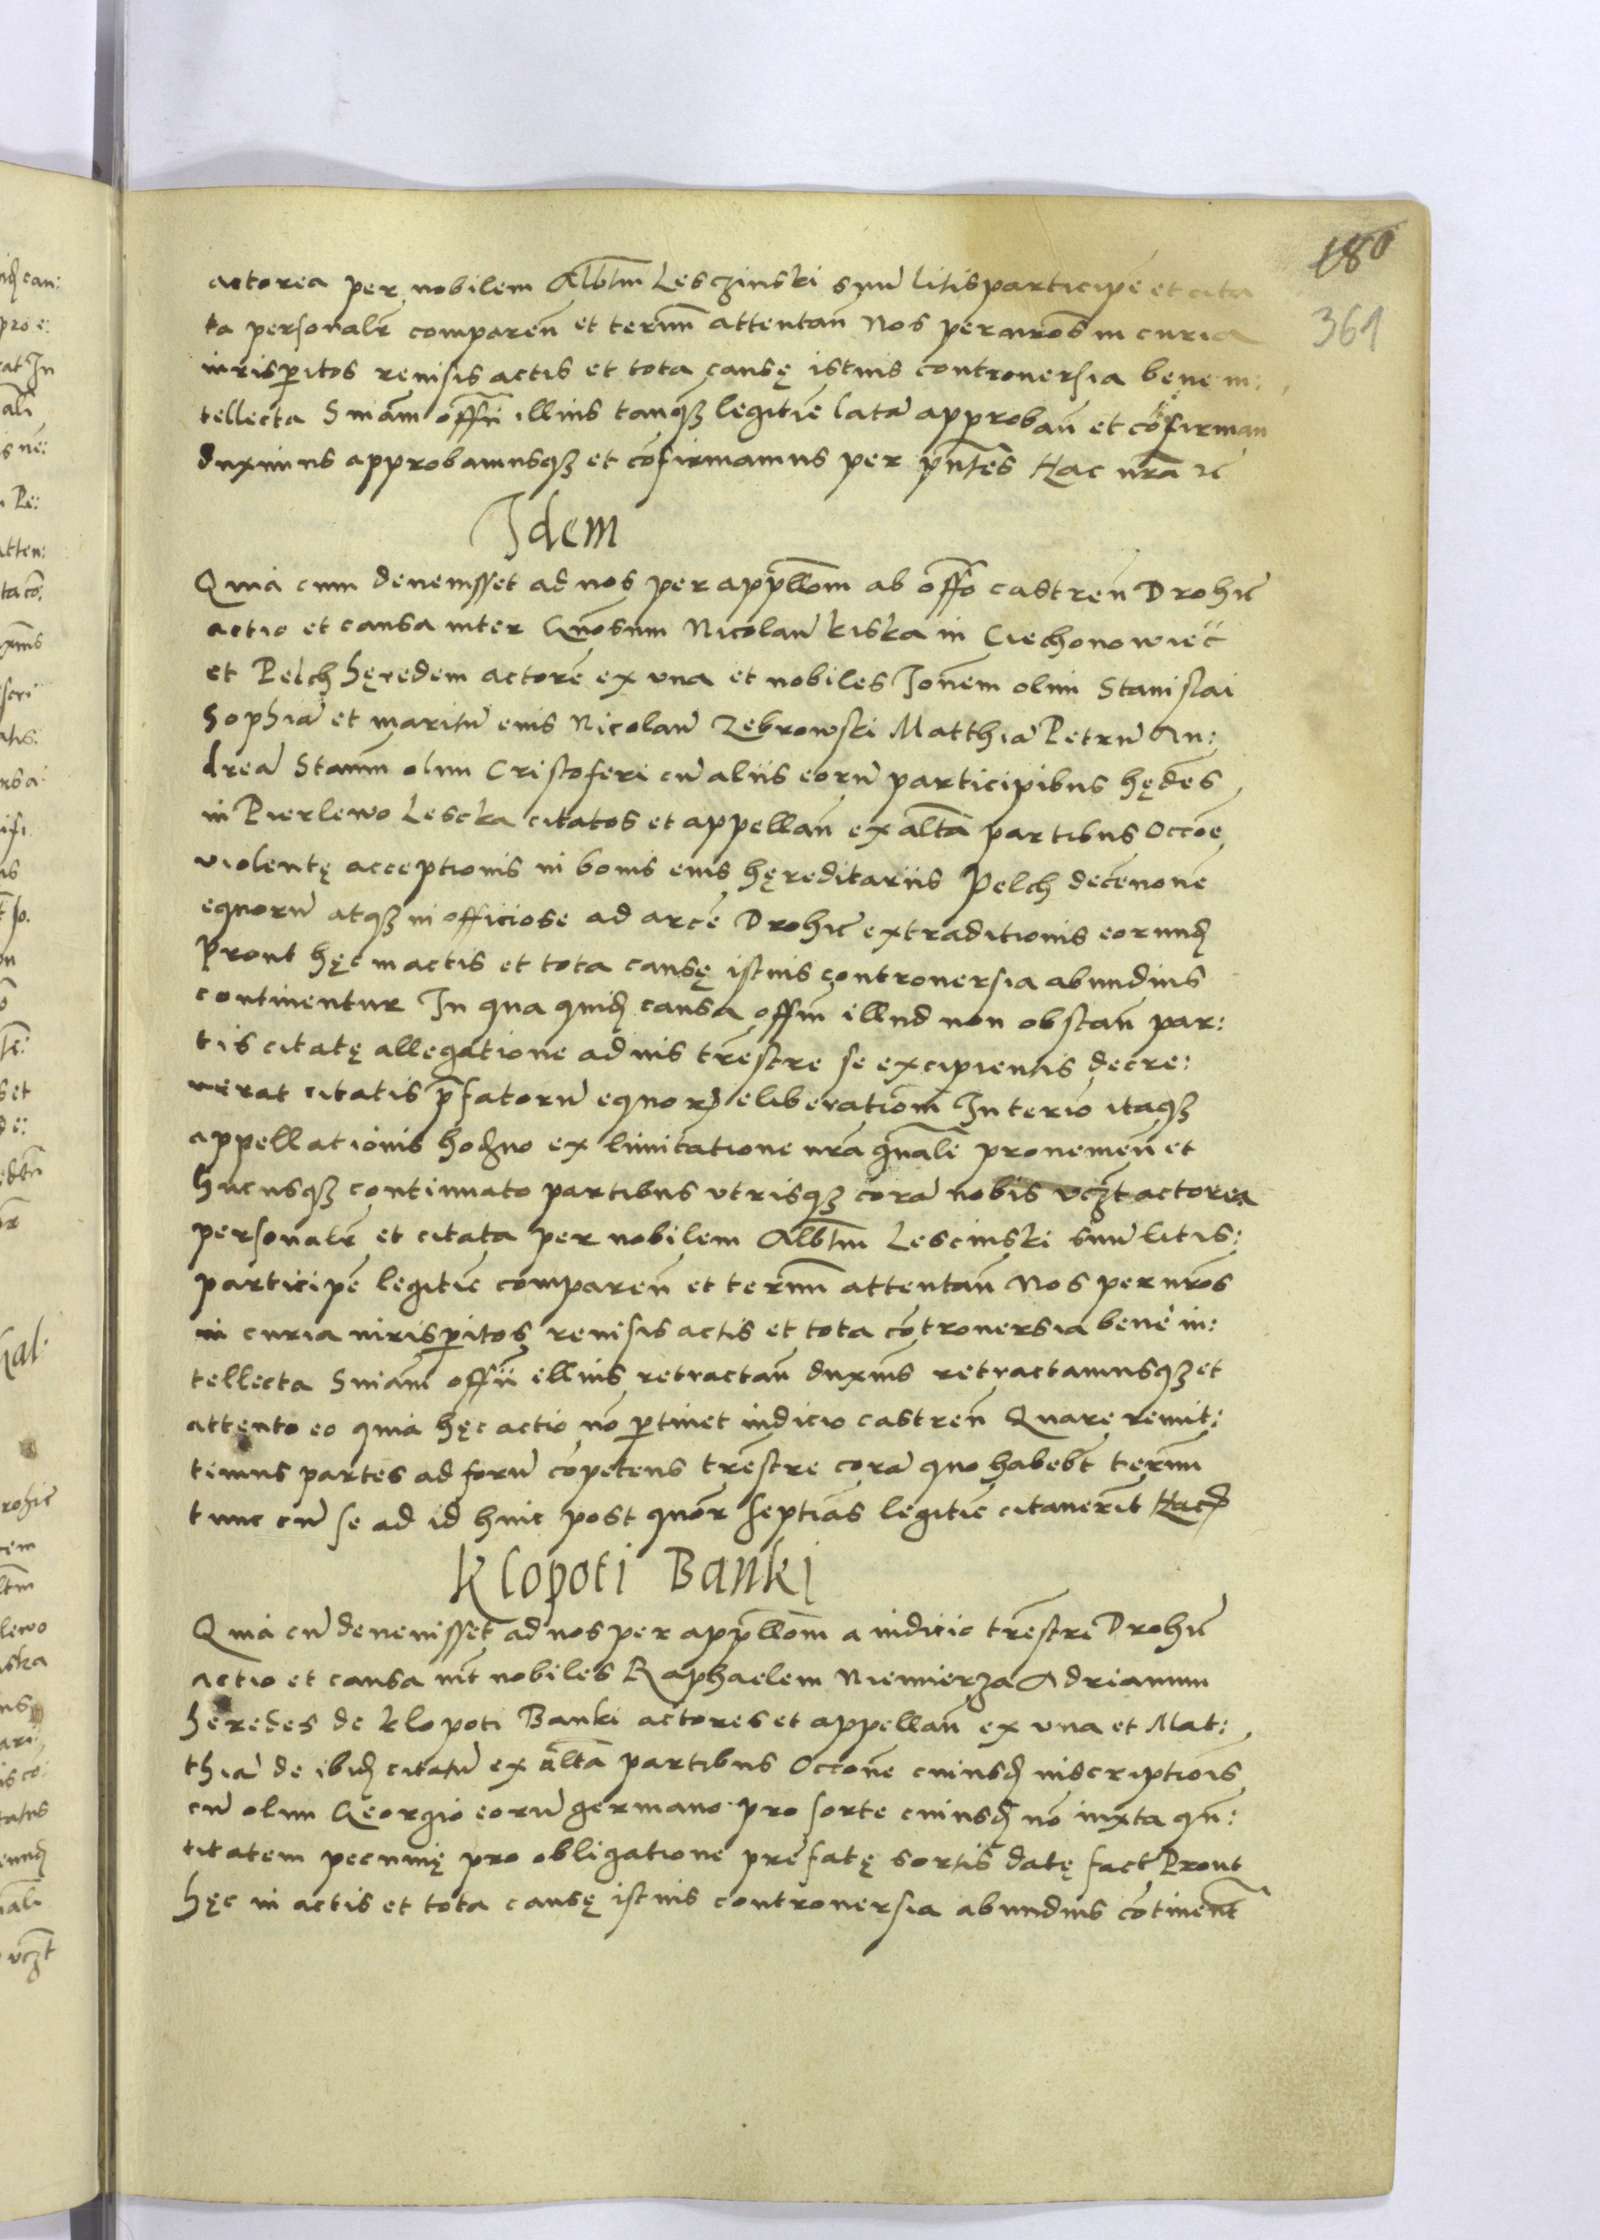 180
361
actorea per nobilem Albtm Lesczinski suu litisparticipe et cita
ta personalr comparen et termm attentan Nos per nros in curia
iurisperitos reuisis actis et tota causę istius controuersia bene in:
tellecta Sniam offii illius tanqz legitie lata approban et cofirman
duximus approbamusqz et cofirmamus per pntes Hac nra rc
Idem
Quia cum deuenisset ad nos per appllom ab offo castren Drohic
actio et causa inter Gnosum Nicolau kiska in Ciechonowiec
et Pelch hęredem actore ex vna et nobiles Ionem olim Stanislai
Sophia et maritu eius Nicolau Zebrowski Matthia Petru An:
drea Stanm olim Cristoferi cu aliis eoru participibus hędes
in Pierlewo Lescka citatos et appellan ex alta partibus Occoe
violentę acceptionis in bonis eius hęreditariis Pelch decenoue
equoru atqz in officiose ad arce Drohic extraditionis eorundz
Prout hęc in actis et tota causę istius controuersia abundius
continentur In qua quidz causa offm illud non obstan par:
tis citatę allegatione ad ius trestre se excipientis decre:
uerat citatis pfatoru equorz eliberationm In terio itaqz
appellationis hodno ex limitatione nra gnale prouenien et
hucusqz continuato partibus vtrisqz cora nobis vczt actorea
personalr et citata per nobilem Albtm Lescinski suu litis:
participe legitie comparen et termm attentan Nos per nros
in curia iurisperitos reuisis actis et tota controuersia bene in:
tellecta Sniam offii illius retractan duxims retractamusqz et
attento eo quia hęc actio no ptinet iudicio castren Quare remit:
timus partes ad foru copetens trestre cora quo habebt termm
tunc cu se ad id hinc post quor septias legitie citauerit Hac
Klopoti Banki
Quia cu deuenisset ad nos per appllom a iudicio trestri Drohic
actio et causa int nobiles Raphaelem Niemierza Adrianum
heredes de klopoti Banki actores et appellan ex vna et Mat:
thia de ibidz citatu ex alta partibus Occone cuiusdz inscriptiois
cu olim Georgio eoru germano pro sorte cuiusdz no iuxta qn:
titatem pecunię pro obligatione prefatę sortis datę fact Prout
hęc in actis et tota causę istius controuersia abundius cotinent